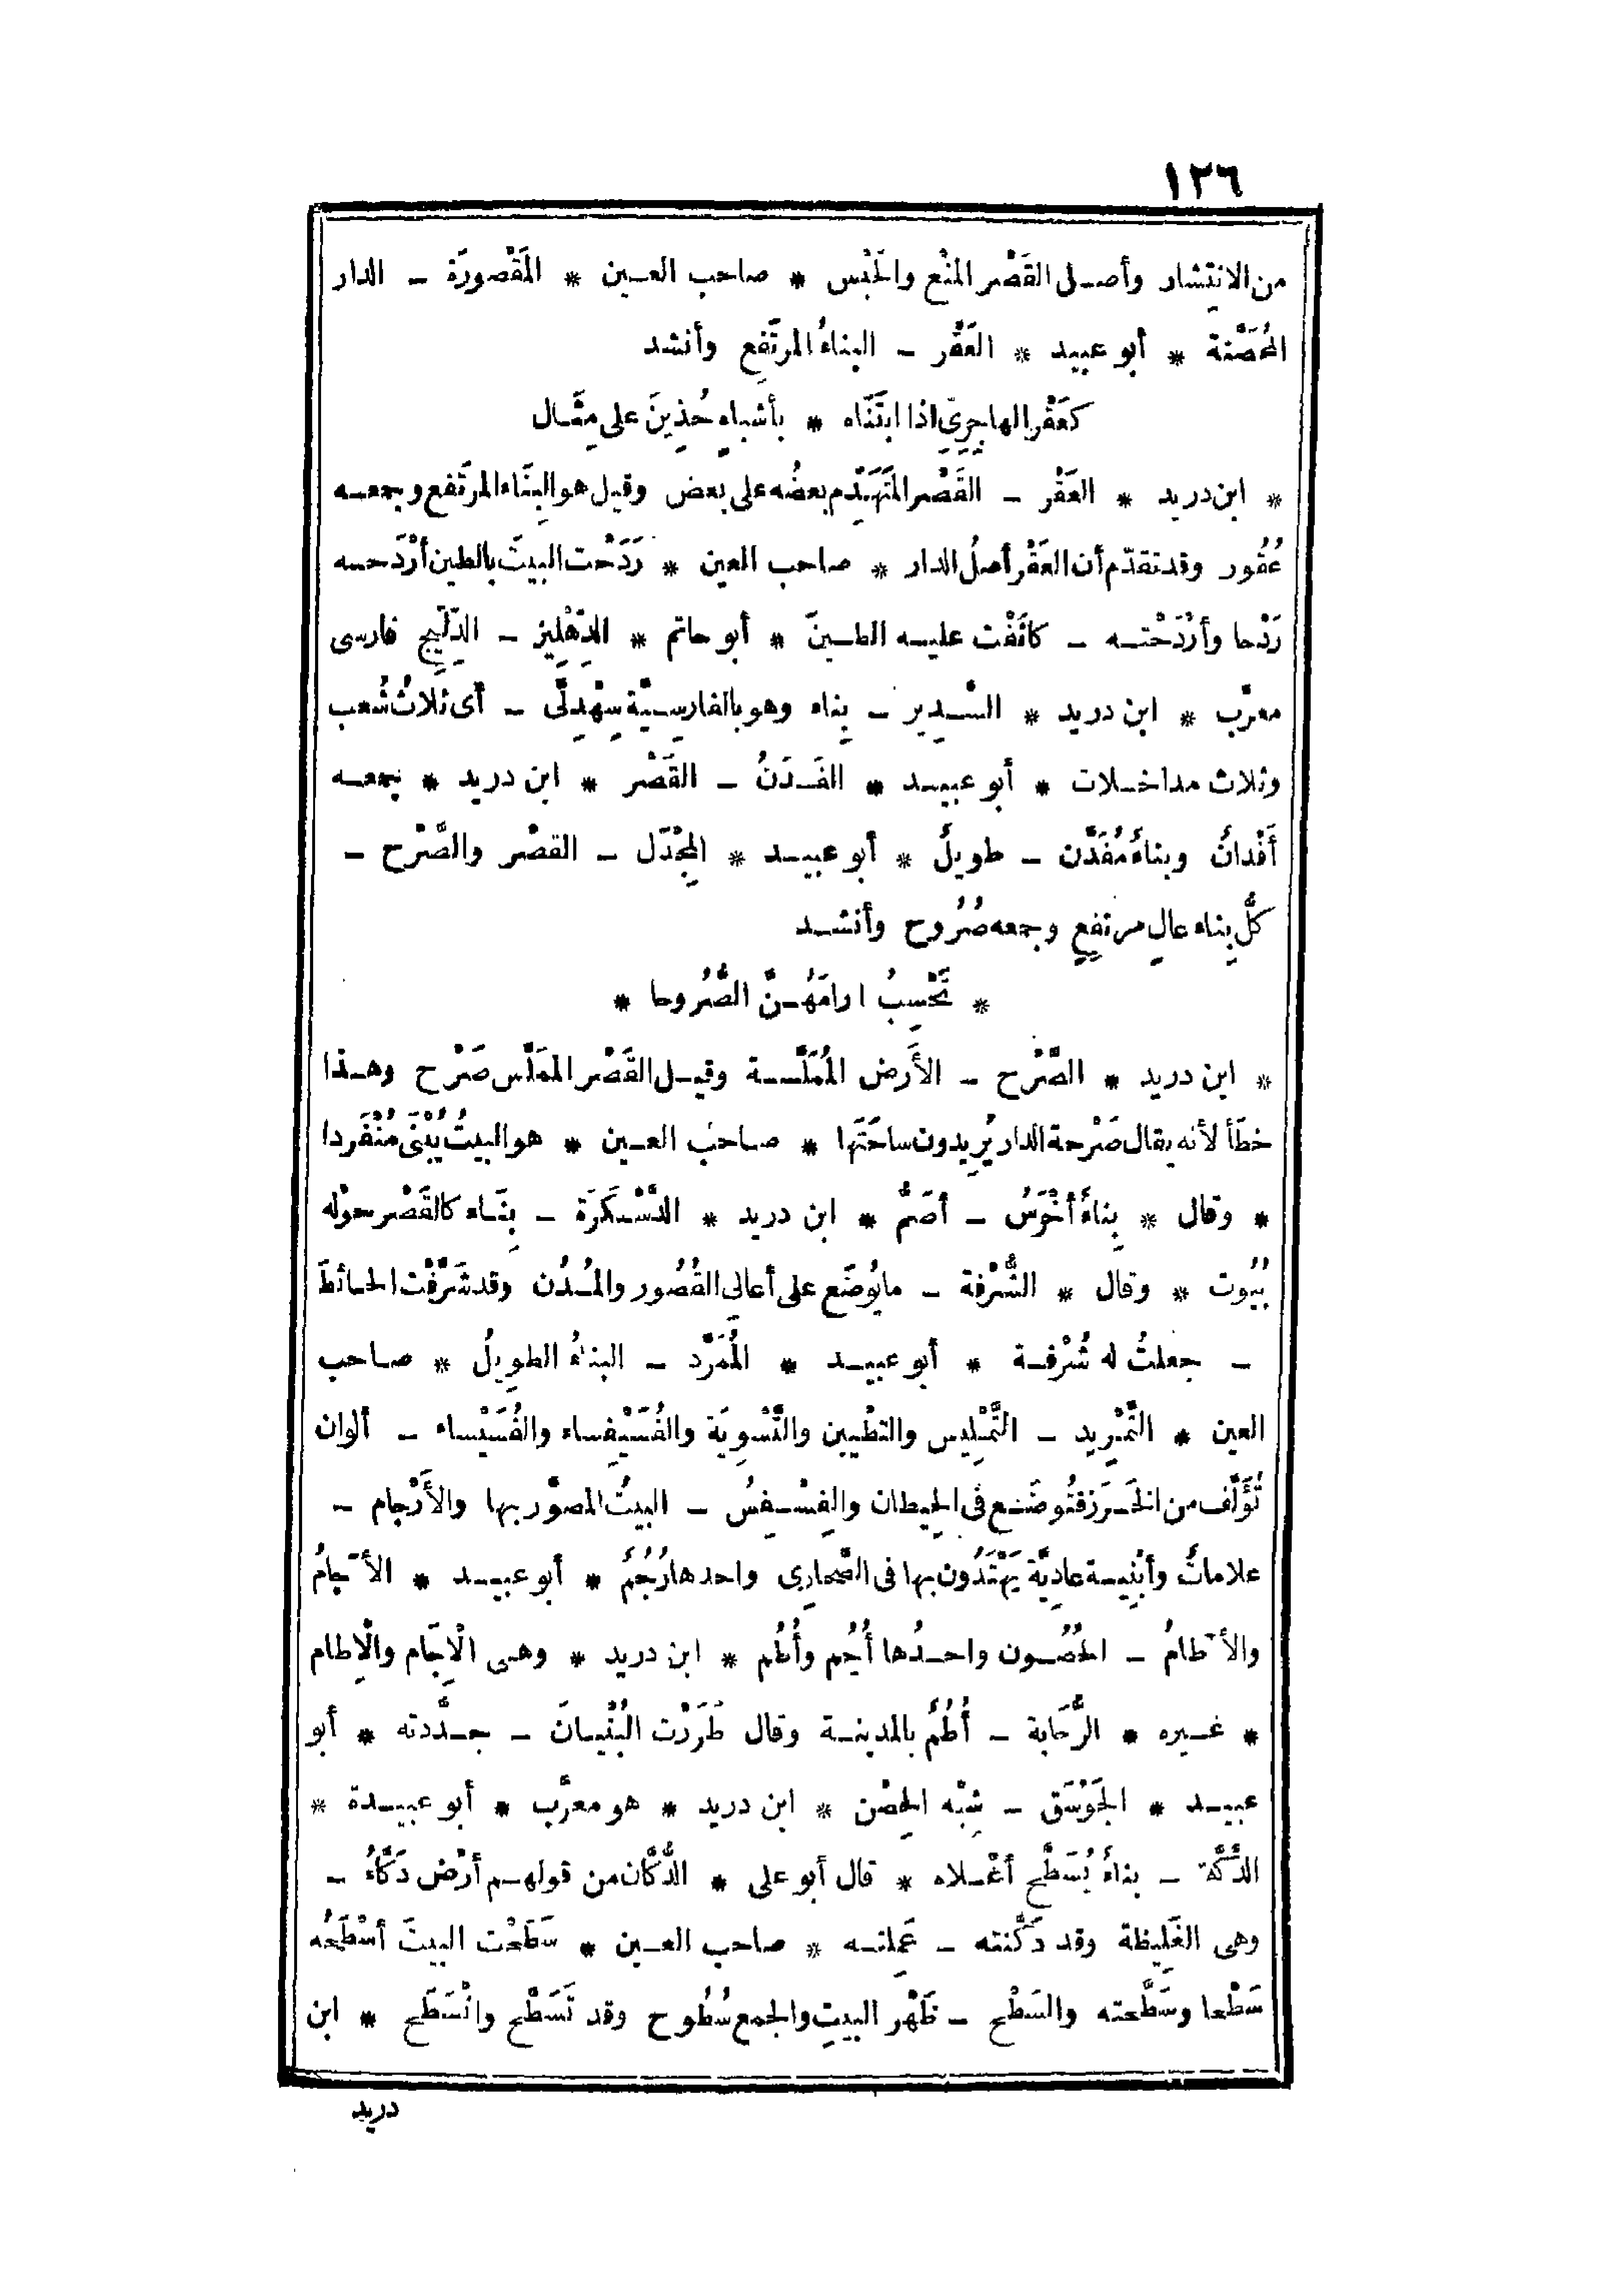 ١٢٦
من الانتِشار وأصل القَصْر المنْع والحَبْس * صاحب العين * المَقْصورَة - الدار
المُحَصَّنة * أبو عبيد * العَقْر - البناءُ المرتَفِع وأنشد
كعَقْر الهاجِرِىّ اذا ابتَنَاه * بأشباهٍ حُذِينَ على مِثَال
* ابن دريد * العَقْر - القَصْر المتَهَدِّم بعضُه على بعض وقيل هو البِنَاء المرتَفع وجمعه
عُقُور وقد تقدّم أن العَقْر أصلُ الدار * صاحب العين * رَدَحْت البيتَ بالطين أرْدَحه
رَدْحا وأرْدَحْته - كاثَفْت عليه الطينَ * أبو حاتم * الدِّهْلِيز - الدِّلِّيج فارسى
معرّب * ابن دريد * السَّدِير - بِناء وهو بالفارِسيَّة سِهْدِلَّى - أى ثلاثُ شُعب
وثلاث مداخلات * أبو عبيد * الفَدَنُ - القَصْر * ابن دريد * جمعه
أَفْدانٌ وبناءٌ مُفَدَّن - طويلٌ * أبو عبيد * المِجْدَل - القصْر والصَّرْح -
كلُّ بِناء عالٍ مرتفِعٍ وجمعه صُرُوح وأنشد
* تَحْسِبُ ارامَهُنَّ الصُّرُوحا *
* ابن دريد * الصَّرْح - الأَرض المُمَلَّسة وقيل القَصْر المملَّس صَرْح وهذا
خطَأ لأنه يقال صَرْحة الدار يُرِيدون ساحَتَها * صاحب العين * هو البيتُ يُبْنَى مُنْفَرِدا
* وقال * بِناءٌ أخْرَسُ - أصَمُّ * ابن دريد * الدَّسْكَرَة - بِنَاء كالقَصْر حوْله
بُيُوت * وقال * الشُّرْفة - ما يُوضَع على أعالى القُصُور والمُدُن وقد شَرَّفْت الحائطَ
- جعلتُ له شُرْفة * أبو عبيد * المُمَرَّد - البناءُ الطويِلُ * صاحب
العين * التَّمْرِيد - التَّمْلِيس والتطْيين والتَّسْوِيَة والفُسَيْفِساء والفُسَيْساء - ألوان
تُؤَلَّف من الخَرَز فتُوضَع فى الحِيطان والفِسْفِسُ - البيتُ المصوَّر بها والأَرْجام -
علاماتٌ وأبْنِية عادِيَّة يَهْتَدُون بها فى الصَّحارِى واحدها رُجُمٌ * أبو عبيد * الآجامُ
والآطامُ - الحُصُون واحدُها أُجُم وأُطُم * ابن دريد * وهى الْاِجَام والْاِطام
* غيره * الرُّحَابة - أُطُمٌ بالمدينة وقال طَرَرْت البُنْيانَ - جدَّدته * أبو
عبيد * الجَوْسَق - شِبْه الحِصْن * ابن دريد * هو معرَّب * أبو عبيدة *
الدَّكَّة - بناءٌ يُسَطَّح أعْلاه * قال أبو على * الدُّكَّان من قولهم أرْض دَكَّاءُ -
وهى الغَلِيظة وقد دَكَّنته - عَمِلته * صاحب العين * سَطَحْت البيتَ أسْطَحُه
سَطْحا وسَطَّحته والسَطْح - ظَهْر البيتِ والجمع سُطُوح وقد تَسَطَّح وانْسَطَح * ابن
دريد